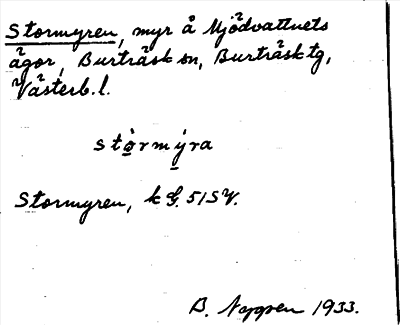 Stormyren, myr å Mjödvattnets
ägor, Burträsk sn, Burträsk tg,
Västerb. l.
stòrmýra
Stormyren, k G. 51 SV.
B. 1933.